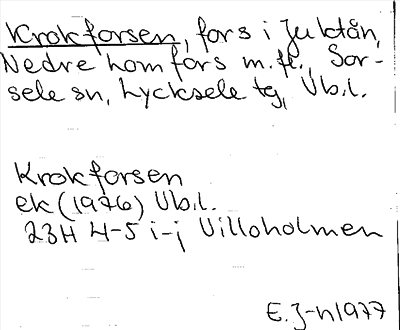 Krokforsen, fors i Juktån,
Nedre homfors m.fl., Sor-
sele sn, Lycksele tg, Vb.l.
Krokforsen
ek (1976) Vb.l.
23H 4-5 i-j Villoholmen
E.J-n 1977